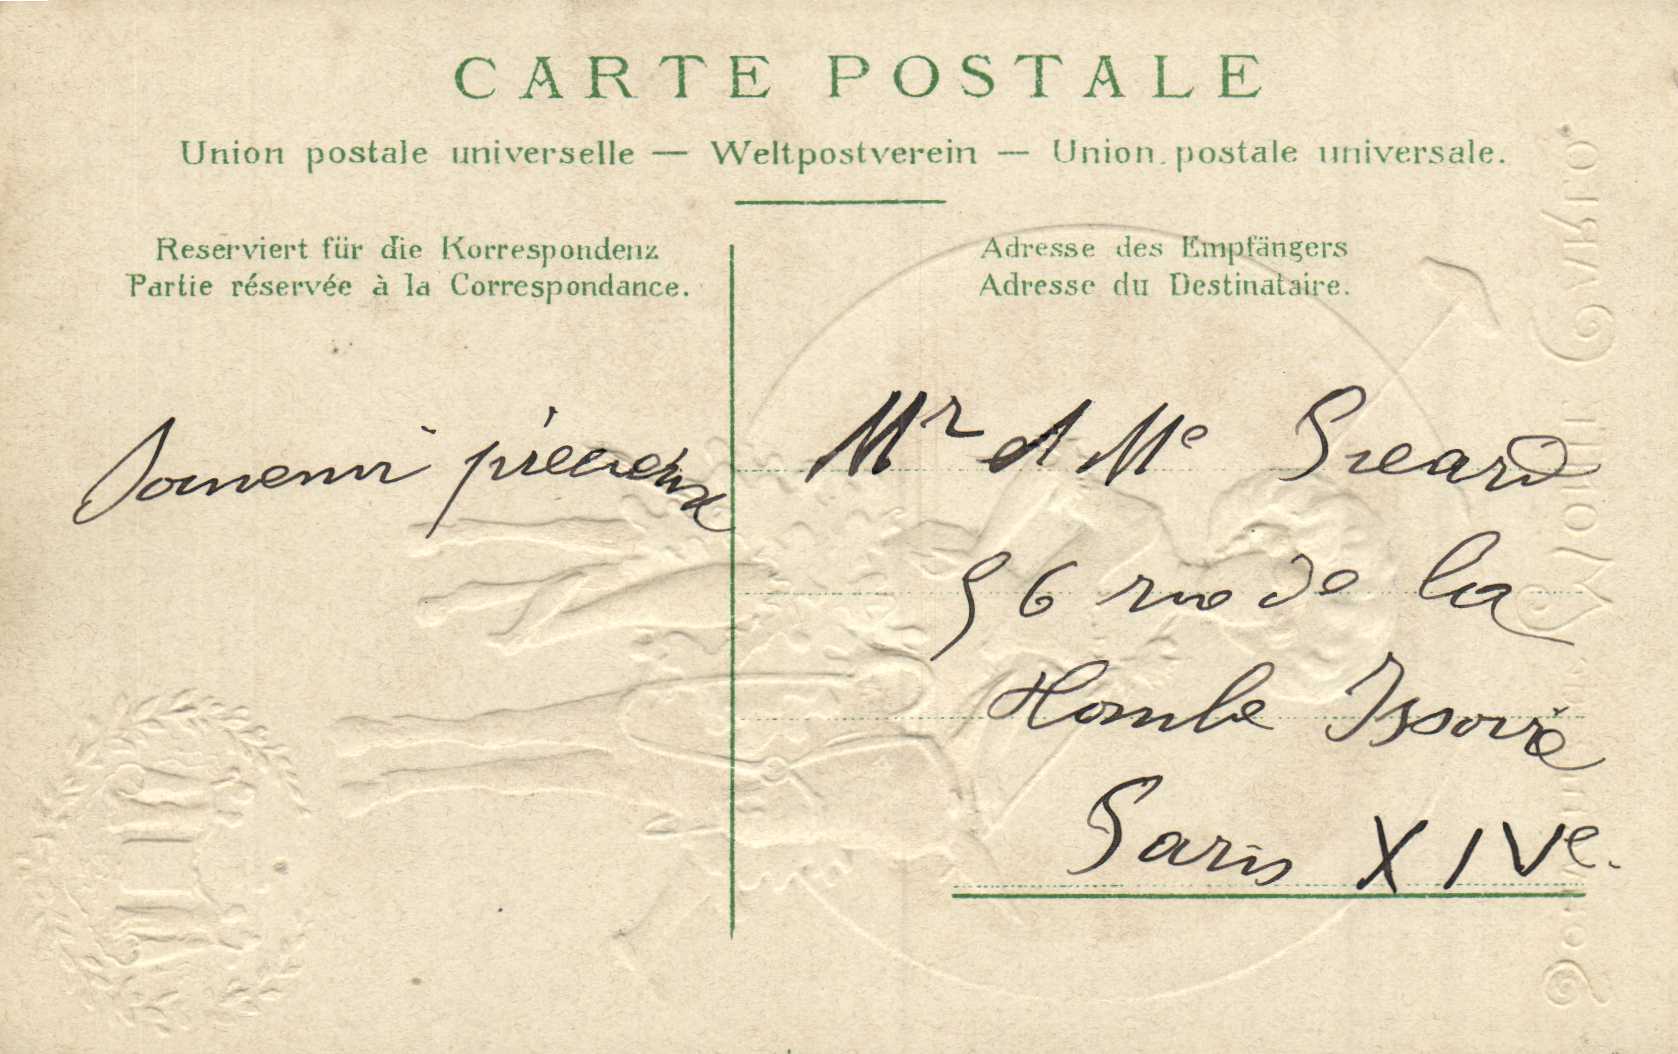 CARTE POSTALE
Union postale universelle — Weltpostverein — Union postale universale.
Reserviert für die Korrespondenz
Partie réservée à la Correspondance.
Adresse des Empfängers
Adresse du Destinataire.
Souvenir précieux
Mr et Me
56 rue de la
Tombe Issoire
Paris XIVe.